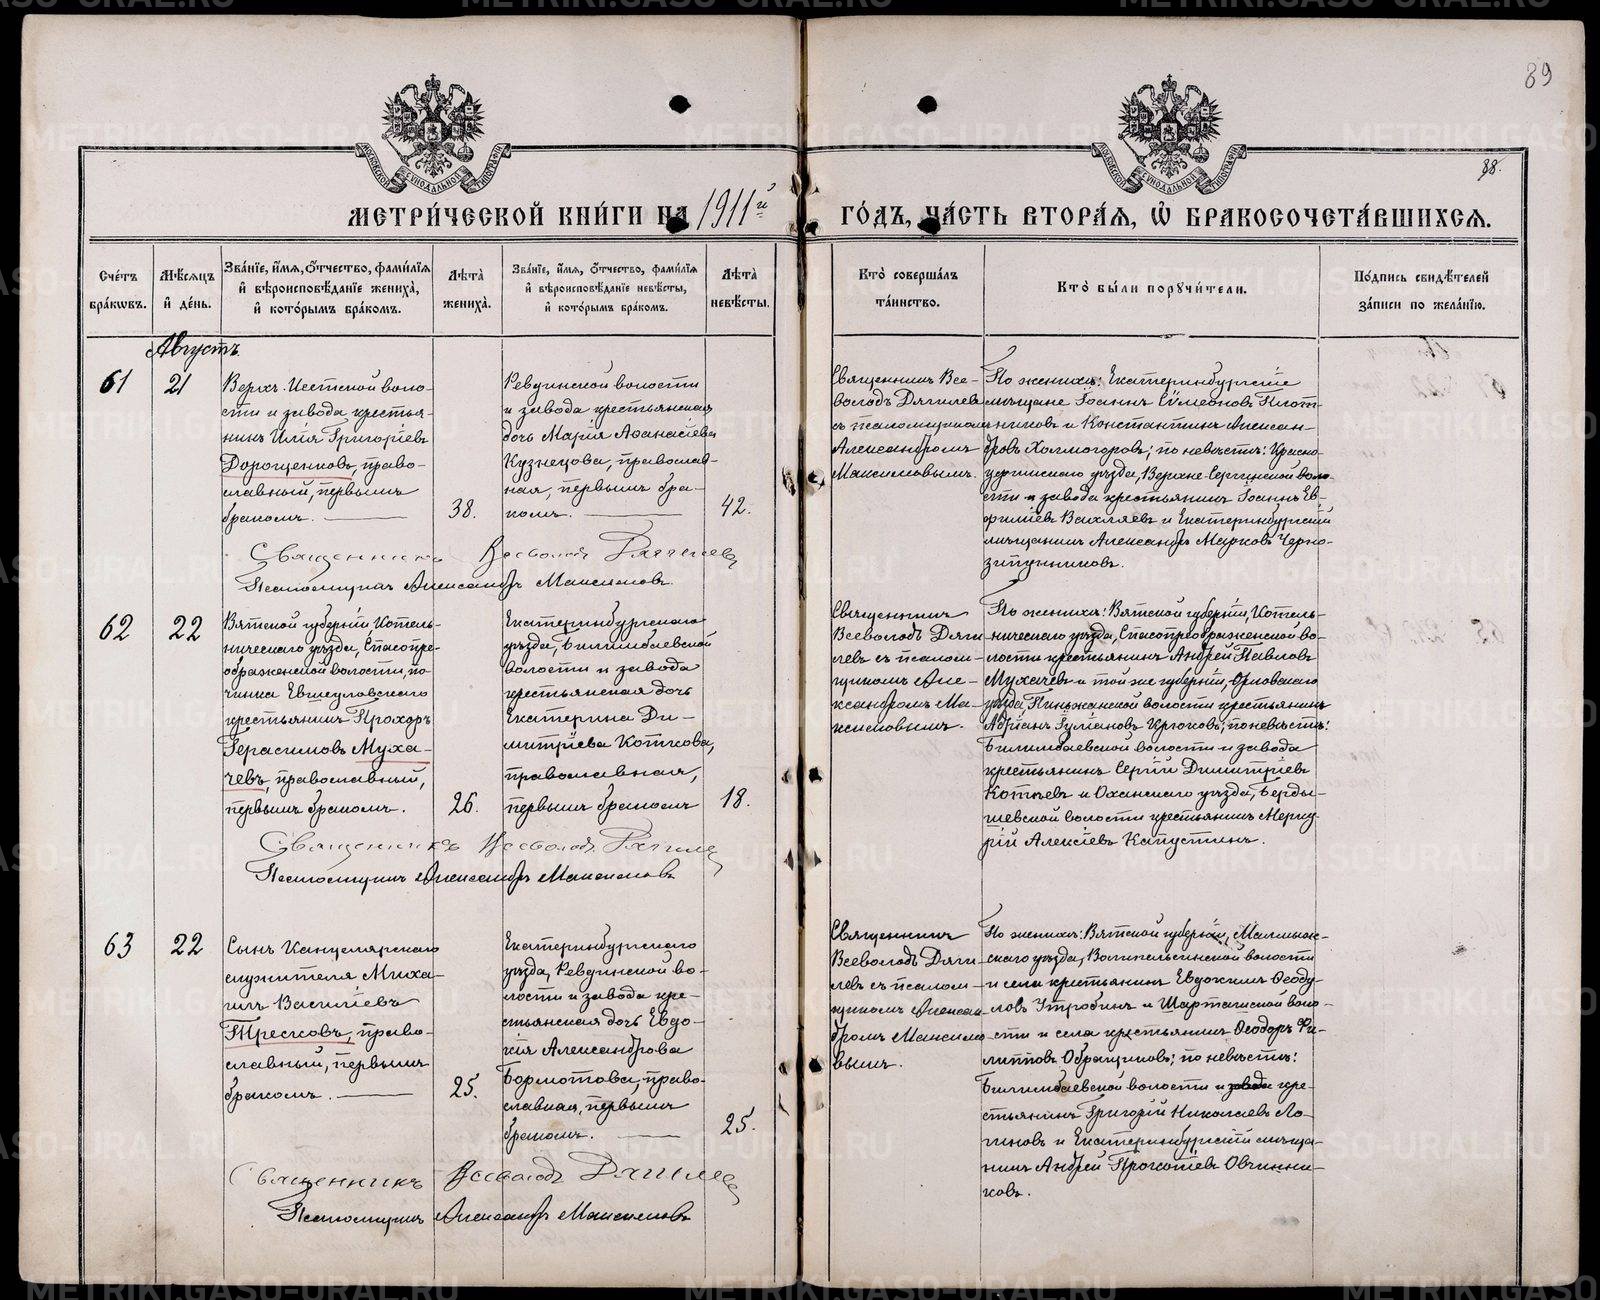 89
88.
МОСКОВСКОЙ СУНОДАЛЬНОЙ ТИПОГРАФІИ
МОСКОВСКОЙ СУНОДАЛЬНОЙ ТИПОГРАФІИ
МЕТРИ́ЧЕСКОЙ КНИ́ГИ НА 1911й ГО́ДЪ, ЧА́СТЬ ВТОРА́Я, Ѡ҆ БРАКОСОЧЕТА́ВШИХСЯ.
Сче́тъ бра́кѡвъ.
Мѣ́сяцъ и҆ де́нь.
Зва́нїе, и҆́мя, ѻ҆́тчество, фами́лїя и҆ вѣроисповѣ́данїе жениха̀, и҆ кото́рымъ бра́комъ.
Лѣ̀та жениха̀.
Зва́нїе, и҆́мя, ѻ҆́тчество, фами́лїя и҆ вѣроисповѣ́данїе невѣ́сты, и҆ кото́рымъ бра́комъ.
Лѣ̀та невѣ́сты.
Кто̀ соверша́лъ та́инство.
Кто̀ бы́ли порꙋчи́тели.
По́дпись свидѣ́телей за́писи по жела́нїю.
Августъ.
61
21
Верхъ-Исетской воло-
сти и завода крестья-
нинъ Илія Григоріевъ
Дорощенковъ, право-
славный, первымъ
бракомъ.
38.
Ревдинской волости
и завода крестьянская
дочь Марія Аѳанасіева
Кузнецова, православ-
ная, первымъ бра-
комъ.
42.
Священникъ Все-
володъ Дягилевъ
съ псаломщикомъ
Александромъ
Максимовымъ.
По женихѣ: Екатеринбургскіе
мѣщане Іоаннъ Сѵмеоновъ Плот-
никовъ и Константинъ Алексан-
дровъ Холмогоровъ; по невѣстѣ: Красно-
уфимскаго уѣзда, Верхне-Сергинской воло-
сти и завода крестьянинъ Іоаннъ Ев-
фиміевъ Вахляевъ и Екатеринбургскій
мѣщанинъ Александръ Марковъ Черно-
зипунниковъ.
Священникъ Всеволодъ Дягилевъ
Псаломщикъ Александръ Максимовъ.
62
22
Вятской губерніи, Котель-
ническаго уѣзда, Спасопре-
ображенской волости, по-
чинка
крестьянинъ Прохоръ
Герасимовъ Муха-
чевъ, православный,
первымъ бракомъ.
26.
Екатеринбургскаго
уѣзда, Билимбаевской
волости и завода
крестьянская дочь
Екатерина Ди-
митріева Коткова,
православная,
первымъ бракомъ
18.
Священникъ
Всеволодъ Дяги-
левъ съ псалом-
щикомъ Але-
ксандромъ Ма-
ксимовымъ.
По женихѣ: Вятской губерніи, Котель-
ническаго уѣзда, Спасопреображенской во-
лости крестьянинъ Андрей Павловъ
Мухачевъ и той же губерніи, Орловскаго
уѣзда, Пинжанской волости крестьянинъ
Адріанъ Крюковъ; по невѣстѣ:
Билимбаевской волости и завода
крестьянинъ Сергій Димитріевъ
Котковъ и Оханскаго уѣзда, Берды-
шевской волости крестьянинъ Мерку-
рій Алексіевъ Капустинъ.
Священникъ Всеволодъ Дягилевъ
Псаломщикъ Александръ Максимовъ
63
22
Сынъ Канцелярскаго
служителя Миха-
илъ Василіевъ
Тресковъ, право-
славный, первымъ
бракомъ.
25.
Екатеринбургскаго
уѣзда, Ревдинской во-
лости и завода кре-
стьянская дочь Евдо-
кія Александрова
Бормотова, право-
славная, первымъ
бракомъ.
25.
Священникъ
Всеволодъ Дяги-
левъ съ псалом-
щикомъ Алексан-
дромъ Максимо-
вымъ.
По женихѣ: Вятской губерніи, Малмыж-
скаго уѣзда, Волипельгинской волости
и села крестьянинъ Евдокимъ Ѳеоду-
ловъ Утробинъ и Шарташской воло-
сти и села крестьянинъ Ѳеодоръ Фи-
липповъ Образцовъ; по невѣстѣ:
Билимбаевской волости и завода кре-
стьянинъ Григорій Николаевъ Ло-
гиновъ и Екатеринбургскій мѣща-
нинъ Андрей Прокопіевъ Овчинни-
ковъ.
Священникъ Всеволодъ Дягилевъ
Псаломщикъ Александръ Максимовъ
METRIKI.GASO-URAL.RU